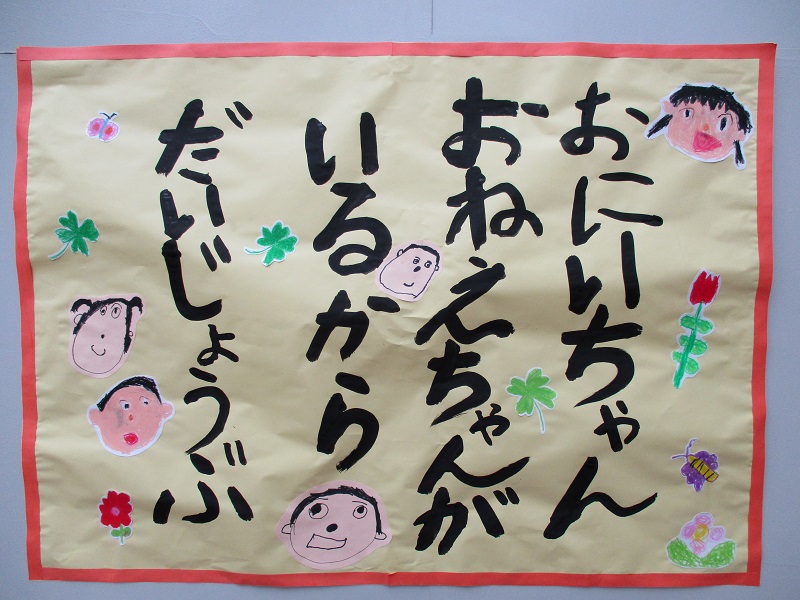 おにいちゃん
おねえちゃんが
いるから
だいじょうぶ